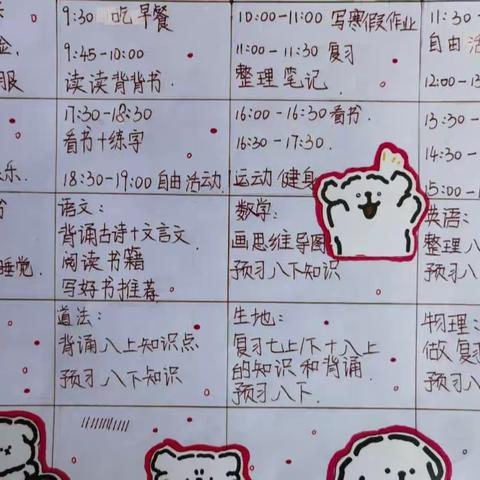 9:30 吃早餐
9:45-10:00
读读背背书.
10:00-11:00 写寒假作业
11:00-11:30 复习
整理笔记.
11:30-
自由活
12:00-13
服
17:30-18:30
看书+练字
18:30-19:00 自由活动
16:00-16:30 看书.
16:30-17:30.
运动 健身
13:30-
14:30-
15:00-
乐.
语文:
背诵古诗+文言文.
阅读书籍
写好书推荐
数学:
画思维导图
预习八下知识
英语:
整理八
预习八
睡觉.
道法:
背诵八上知识点
预习八下知识
生地:
复习七上/下+八上
的知识和背诵.
预习八下.
物理:
做复习
预习八